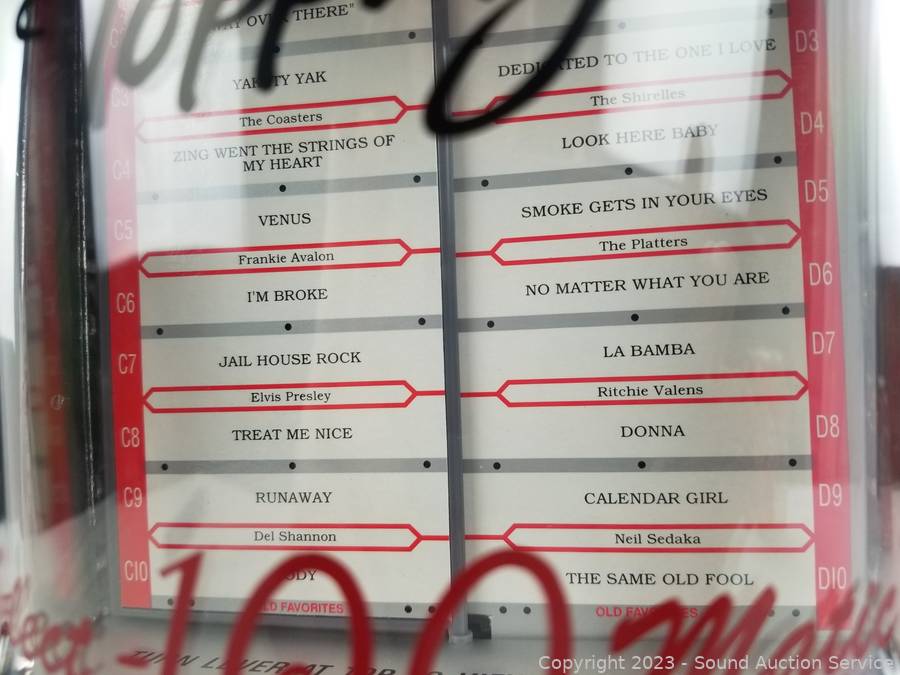 Topping
WAY OVER THERE"
C3
YAKETY YAK
The Coasters
C4
ZING WENT THE STRINGS OF
MY HEART
C5
VENUS
Frankie Avalon
C6
I'M BROKE
C7
JAIL HOUSE ROCK
Elvis Presley
C8
TREAT ME NICE
C9
RUNAWAY
Del Shannon
C10
ODY
OLD FAVORITES
D3
DEDICATED TO THE ONE I LOVE
The Shirelles
D4
LOOK HERE BABY
D5
SMOKE GETS IN YOUR EYES
The Platters
D6
NO MATTER WHAT YOU ARE
D7
LA BAMBA
Ritchie Valens
D8
DONNA
D9
CALENDAR GIRL
Neil Sedaka
D10
THE SAME OLD FOOL
OLD FAVORITES
100
TURN LEVER AT TOP
Copyright 2023 - Sound Auction Service